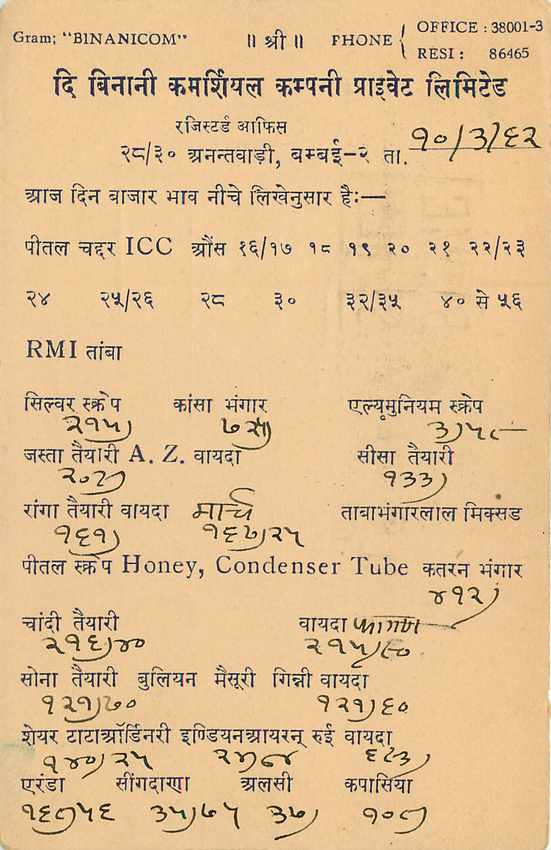 Gram; "BINANICOM" ॥ श्री ॥ PHONE { OFFICE : 38001-3
RESI : 86465
दि बिनानी कमर्शियल कम्पनी प्राइवेट लिमिटेड
रजिस्टर्ड आफिस
२८/३० अनन्तवाड़ी, बम्बई-२ ता. १०/३/६२
आज दिन बाजार भाव नीचे लिखेनुसार है:—
पीतल चद्दर ICC औंस १६/१७ १८ १९ २० २१ २२/२३
२४ २५/२६ २८ ३० ३२/३५ ४० से ५६
RMI तांबा
सिल्वर स्क्रेप कांसा भंगार एल्यूमुनियम स्क्रेप
२१५)
जस्ता तैयारी A. Z. वायदा सीसा तैयारी
१३३)
रांगा तैयारी वायदा मार्च ताबाभंगारलाल मिक्सड
१६१) १६७)२५
पीतल स्क्रेप Honey, Condenser Tube कतरन भंगार
४१२)
चांदी तैयारी वायदा फागण
२१६)४० २१५)८०
सोना तैयारी बुलियन मैसूरी गिन्नी वायदा
१२१)७० १२१)६०
शेयर टाटाऑर्डिनरी इण्डियनआयरन् रुई वायदा
१४०)२५
एरंडा सींगदाणा अलसी कपासिया
३५)७५ ३७)